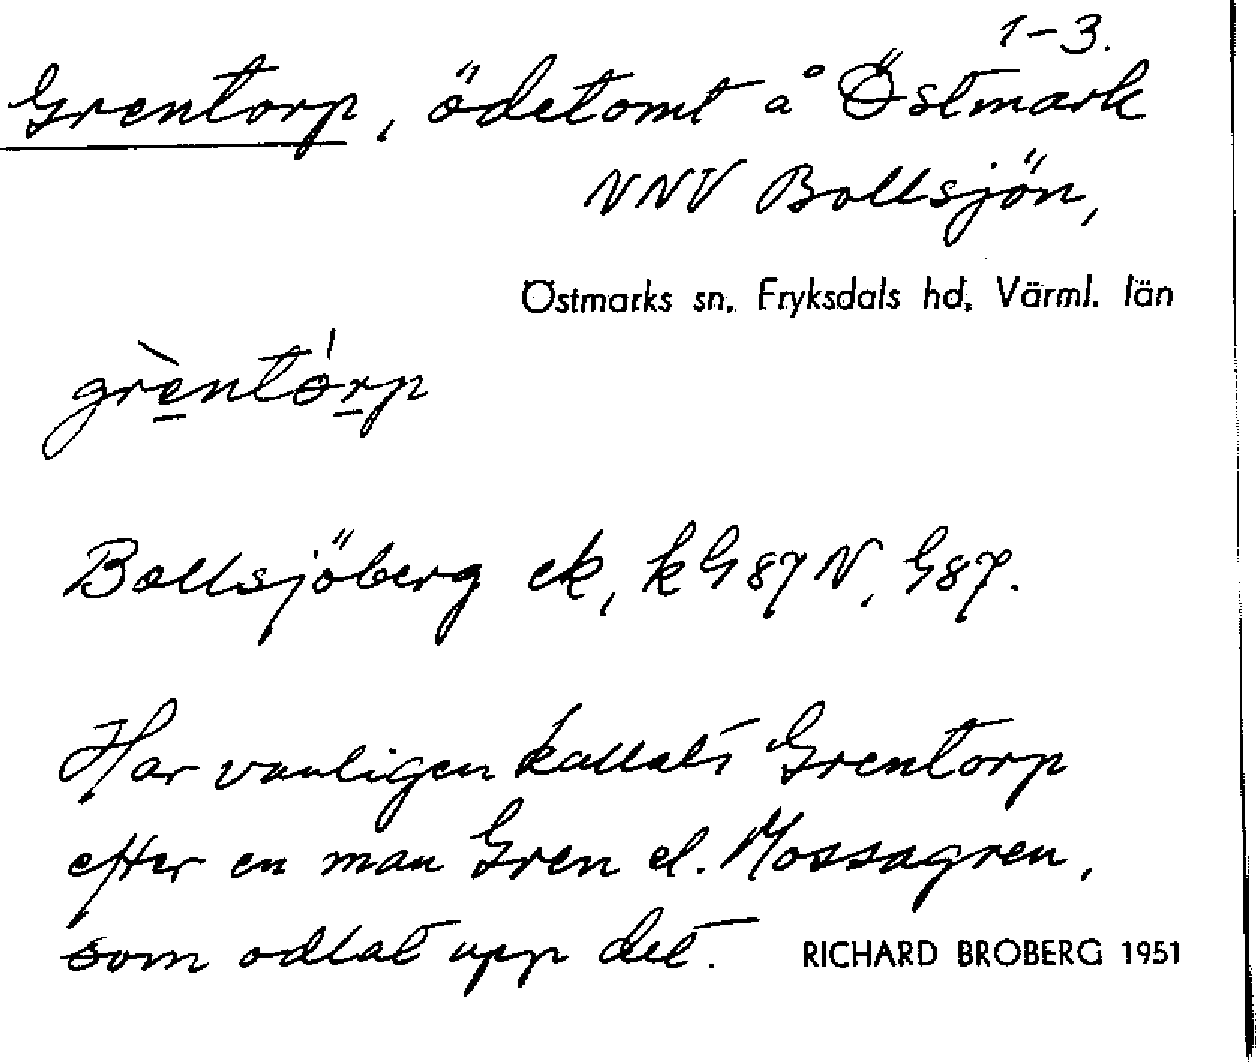 1-3.
Grentorp, ödetomt å Östmark
NNV Bollsjön,
Östmarks sn, Fryksdals hd, Värml. län
grèntórp
Bollsjöberg ek, kG87N, G87.
Har vanligen kallats Grentorp
efter en man Gren el. Mossagren,
som odlat upp det.
RICHARD BROBERG 1951